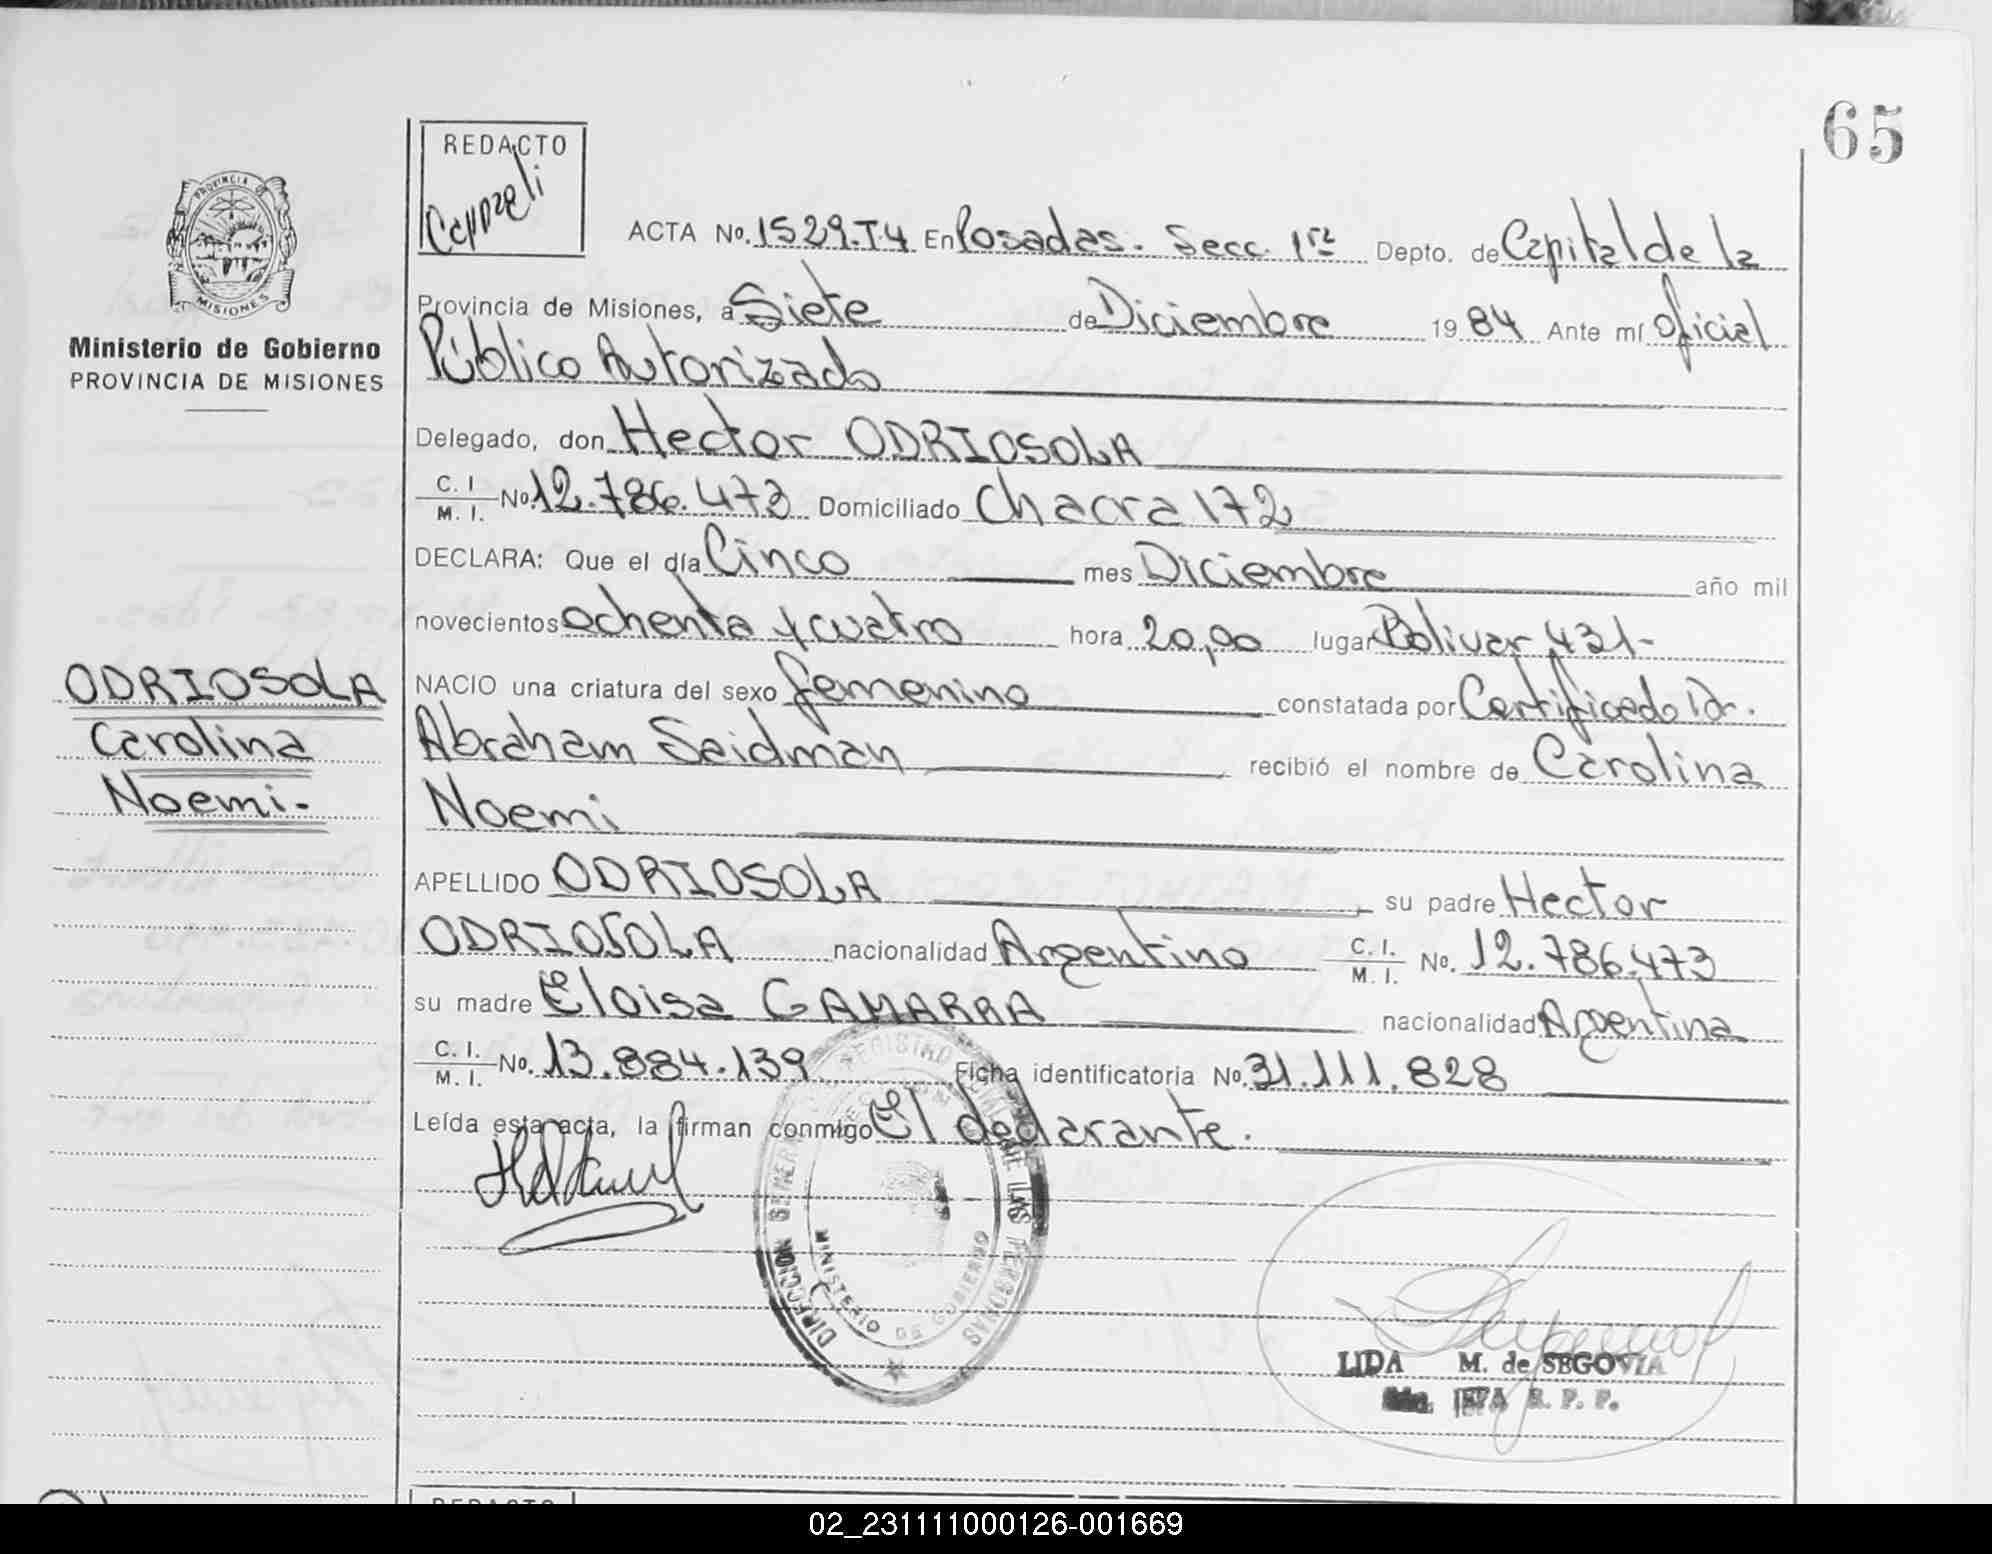 65
REDACTO
PROVINCIA DE
MISIONES
Ministerio de Gobierno
PROVINCIA DE MISIONES
ACTA No. 1529.T4 En Posadas. Secc. 1ra Depto. de Capital de la
Provincia de Misiones, a Siete de Diciembre 1984 Ante mí Oficial
Público Autorizado
Delegado, don Hector ODRIOSOLA
C. I. M. I. No. 12.786.473 Domiciliado Chacra 172
DECLARA: Que el día Cinco mes Diciembre año mil
novecientos ochenta y cuatro hora 20,00 lugar Bolivar 431-
NACIO una criatura del sexo femenino constatada por Certificado Dr.
Abraham Seidman recibió el nombre de Carolina
Noemi
ODRIOSOLA
Carolina
Noemi.-
APELLIDO ODRIOSOLA su padre Hector
ODRIOSOLA nacionalidad Argentino C. I. M. I. No. 12.786.473
su madre Eloisa GAMARRA nacionalidad Argentina
C. I. M. I. No. 13.884.139 Ficha identificatoria No. 31.111.828
Leída esta acta, la firman conmigo El declarante.
DIRECCION GENERAL REGISTRO DE LAS PERSONAS
MINISTERIO DE GOBIERNO
LIDA M. de SEGOVIA
R. P. P.
REDACTO
02_231111000126-001669